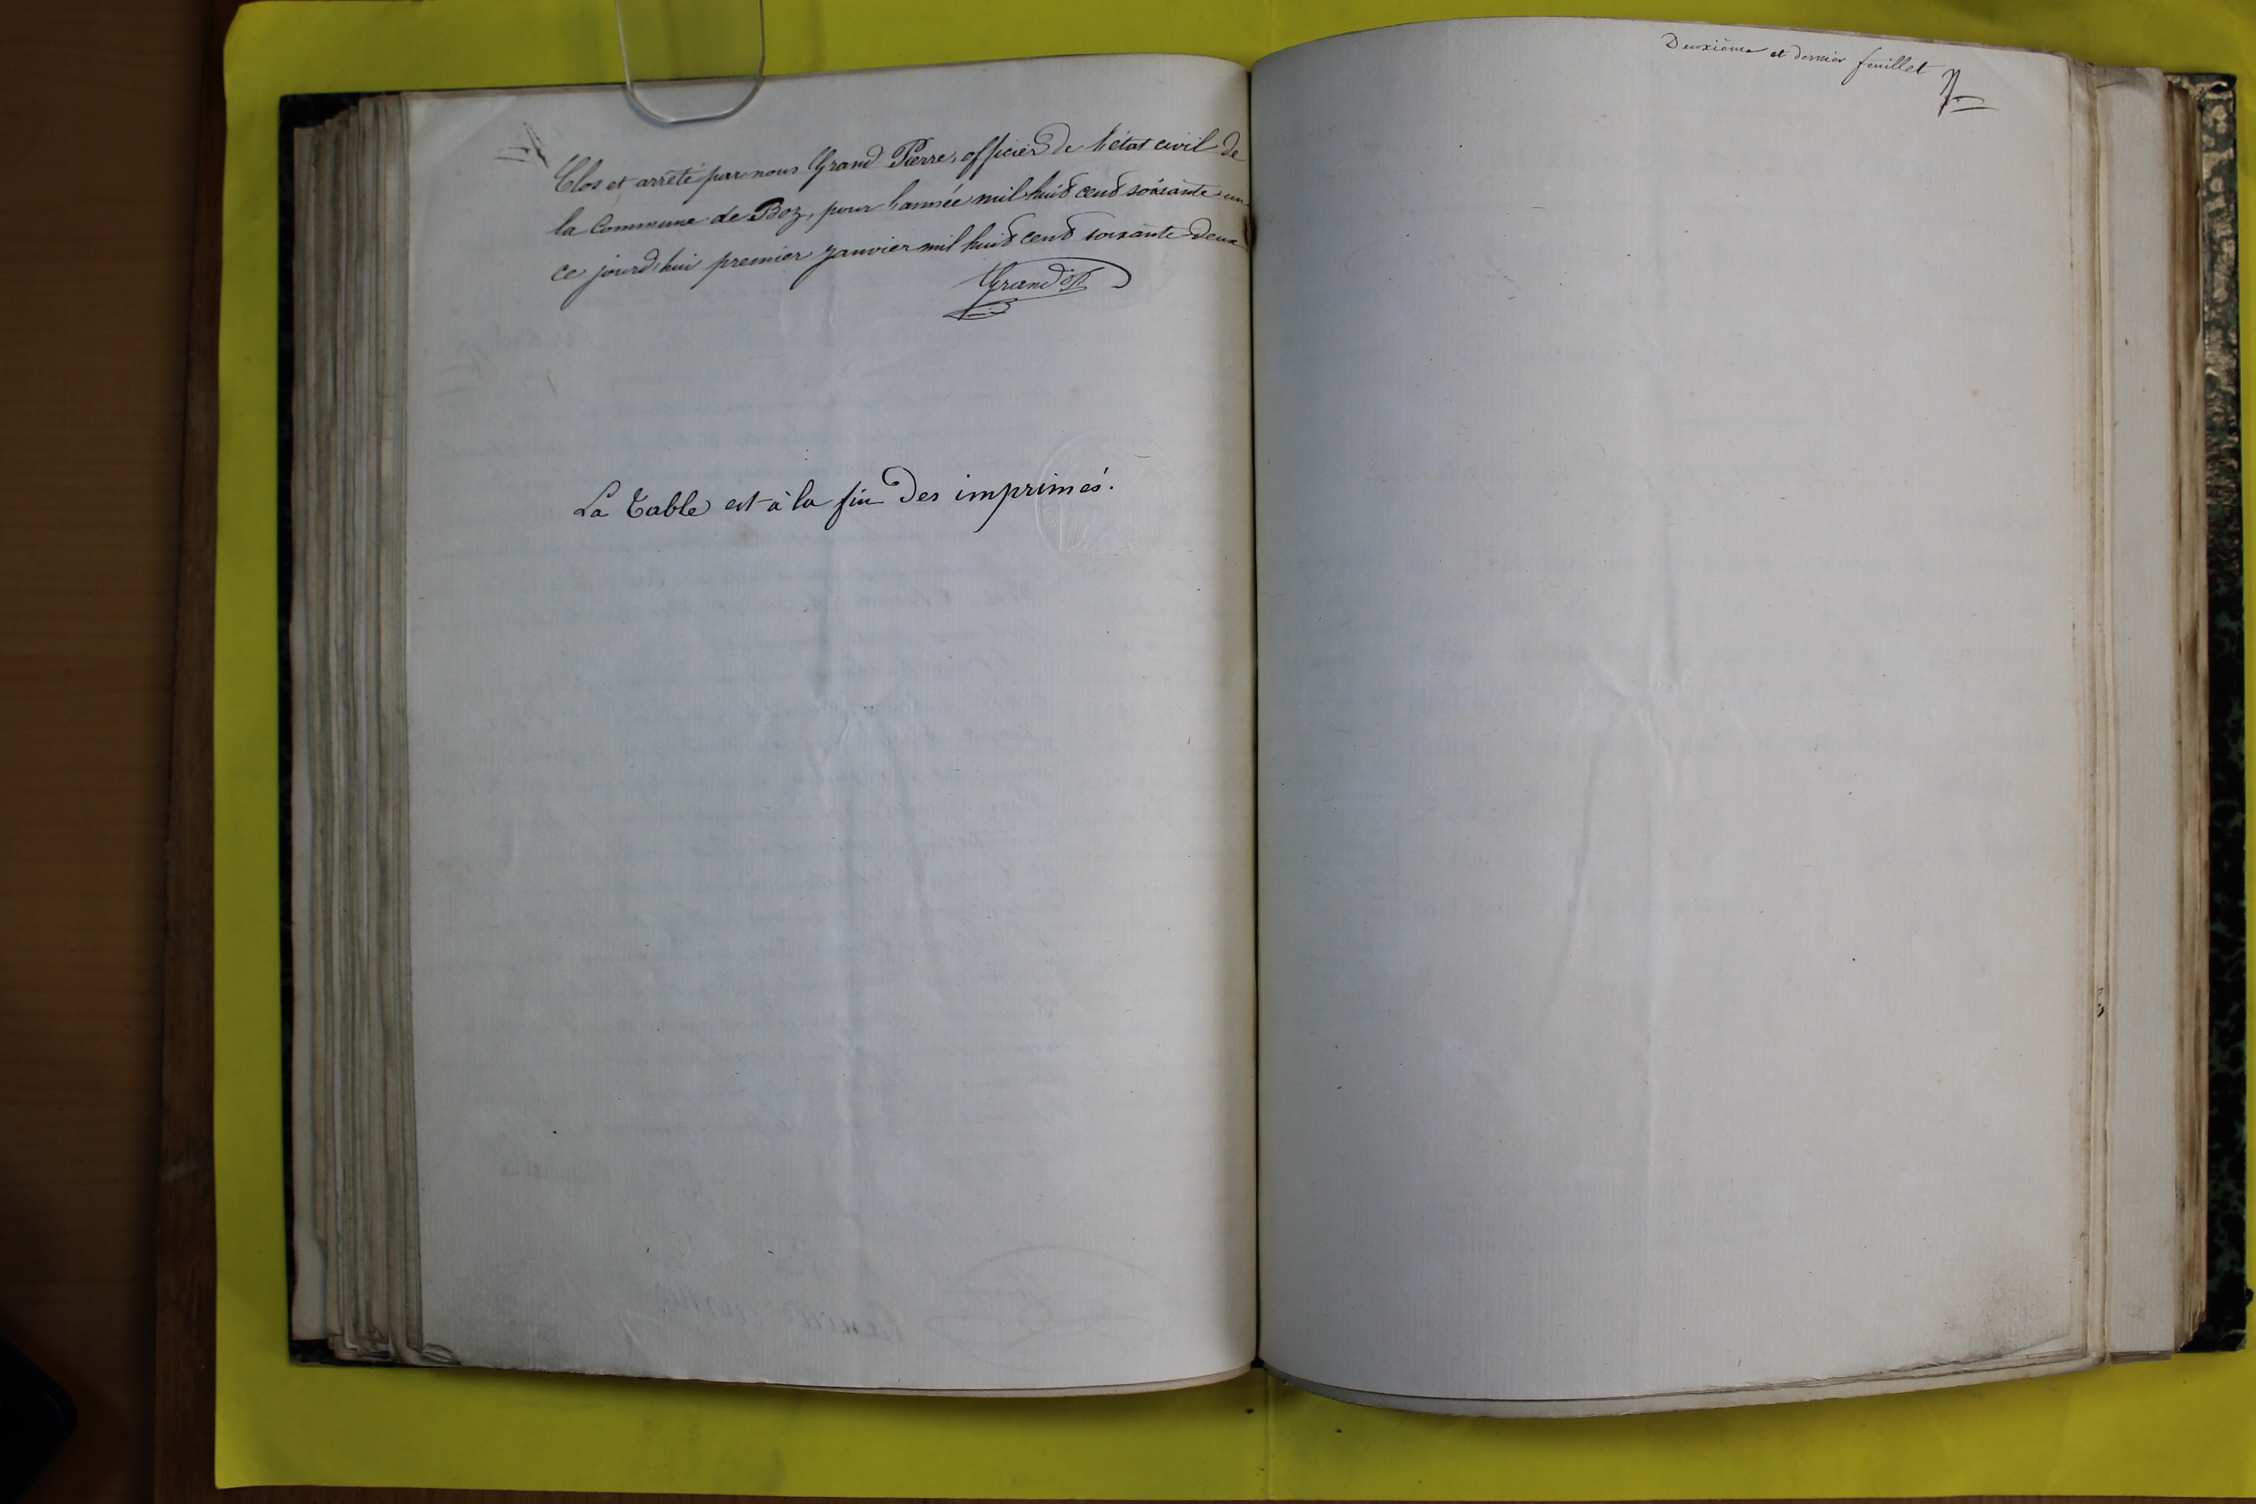 Clos et arrêté par nous Grand Pierre, officier de l'état civil de
la Commune de Boz, pour l'année mil huit cent soixante un
ce jourd'hui premier janvier mil huit cent soixante deux
Grand P
La Table est à la fin des imprimés.
Deuxième et dernier feuillet